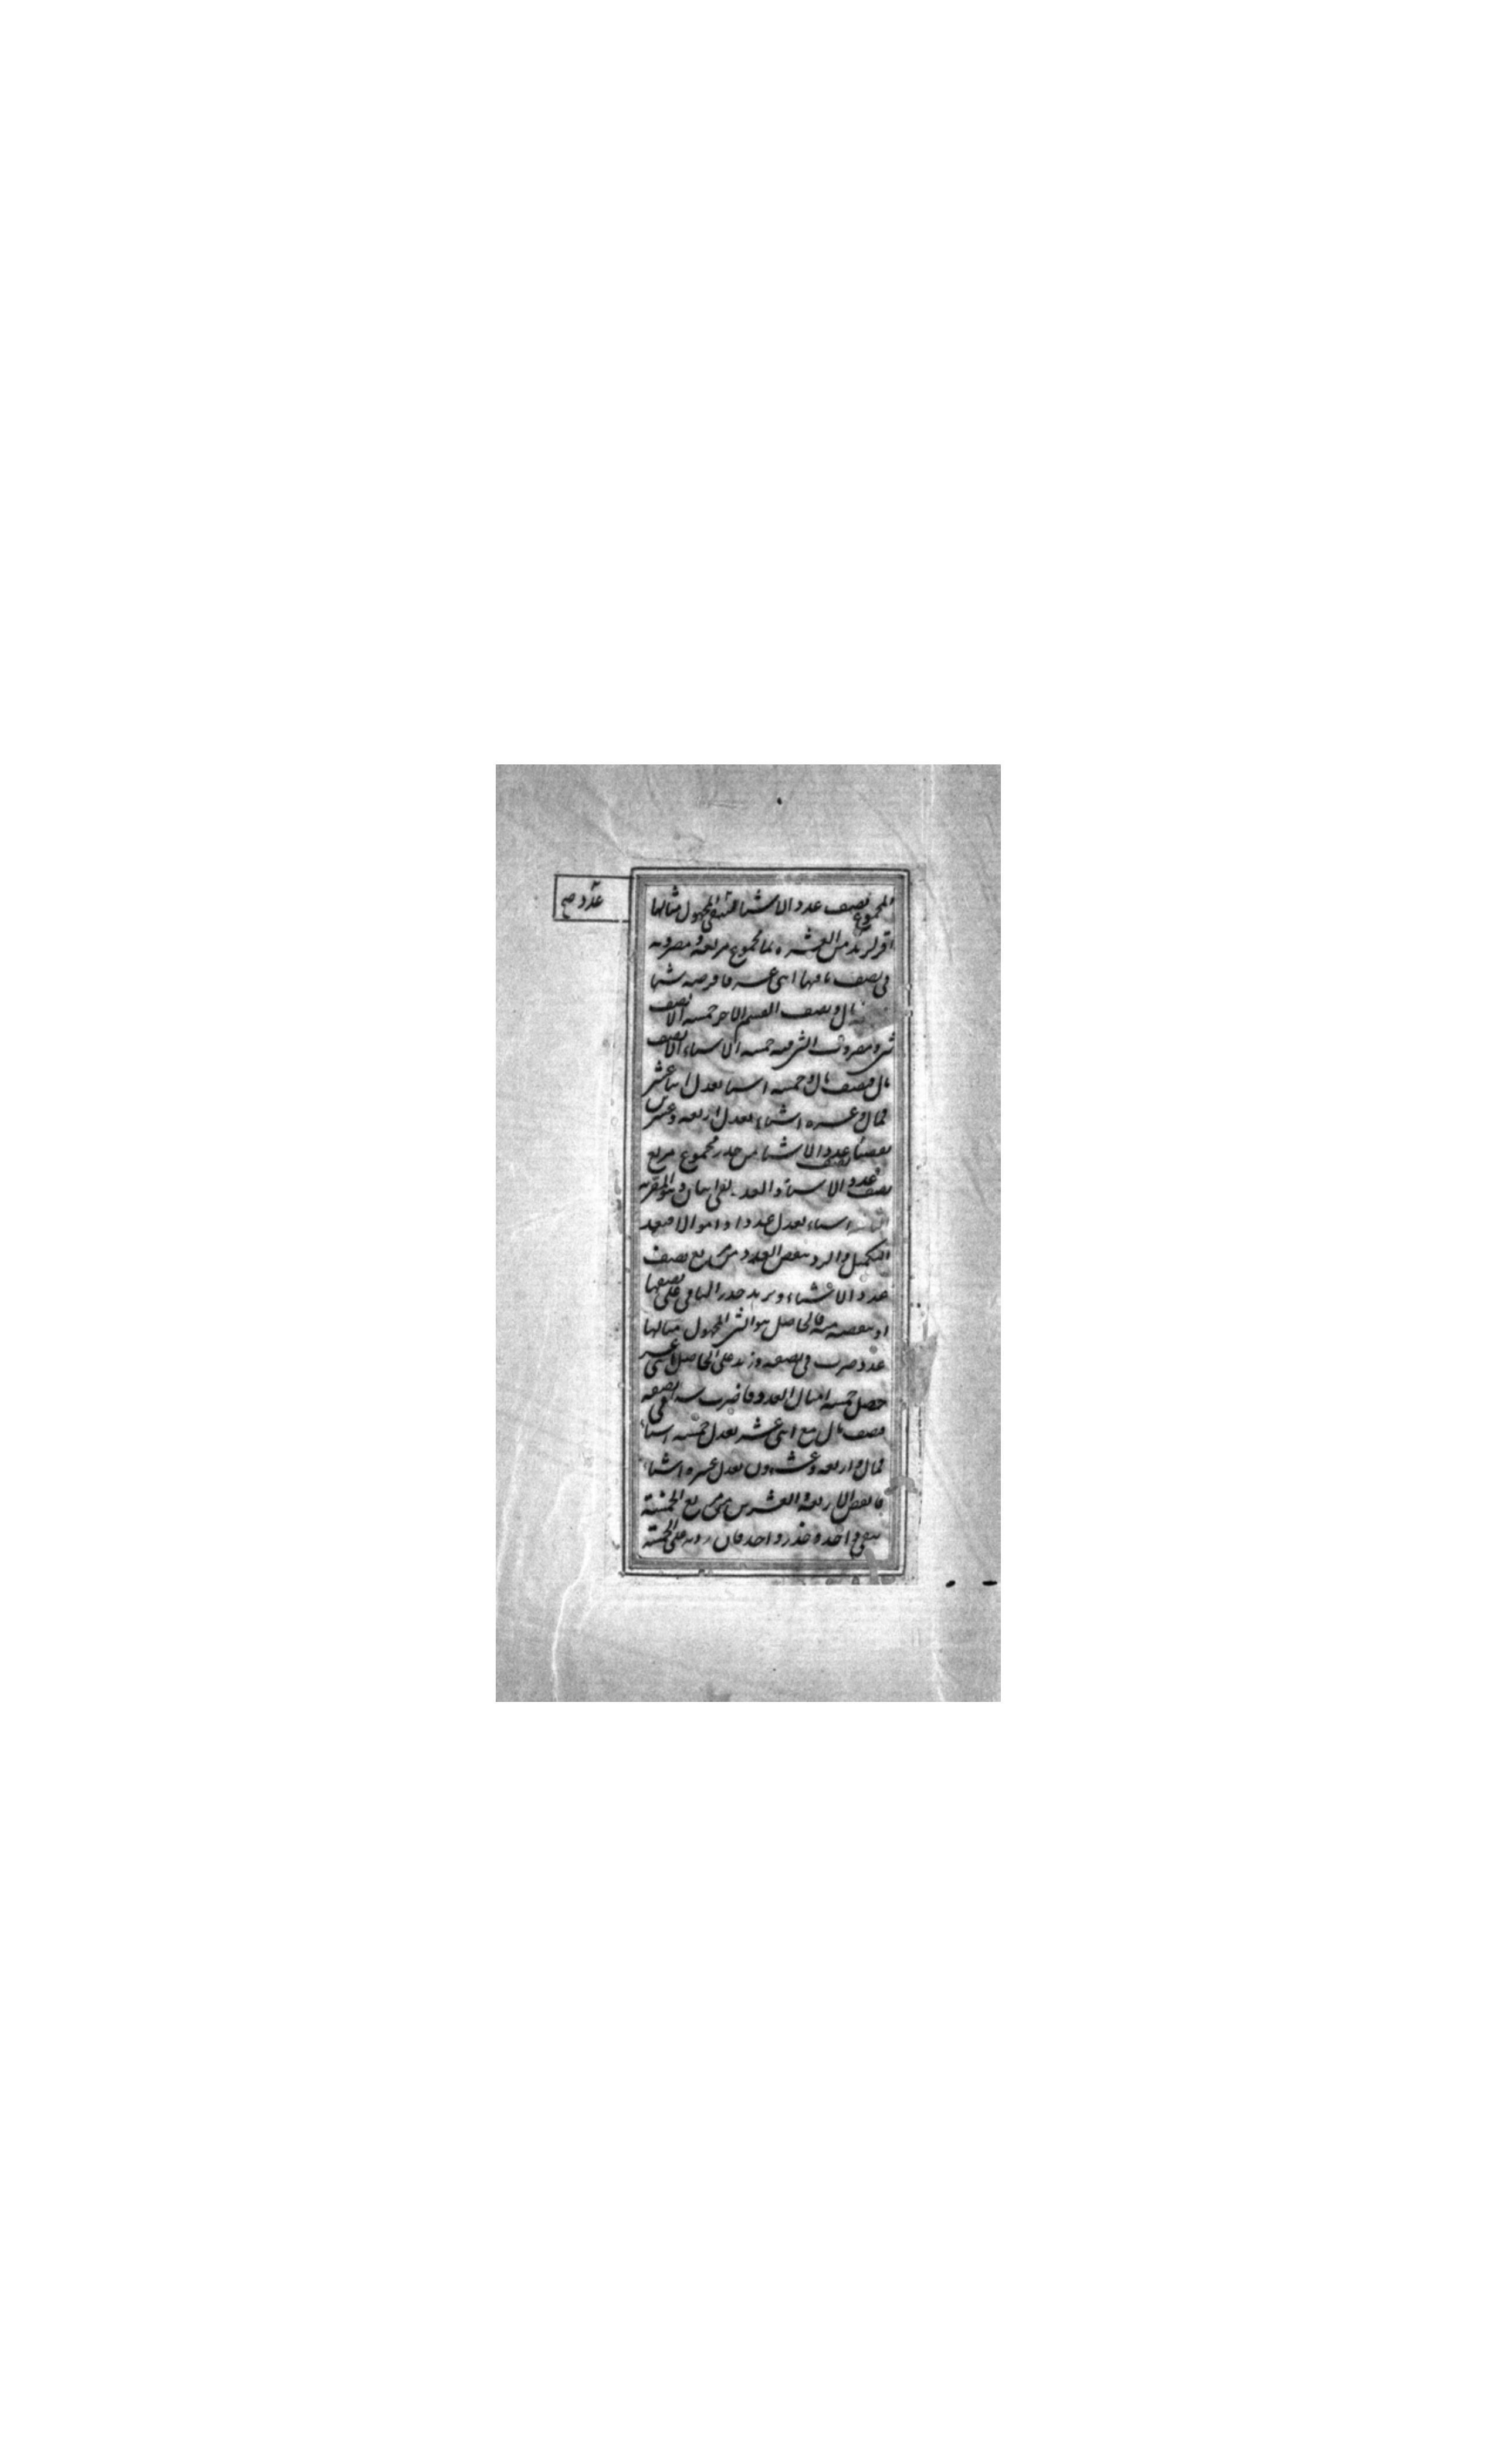 عدد صح
المجموع نصف عدد الاشيا ليبقى المجهول مثالها
اقر لزيد من العشره بما مجموع مربعه و مضروبه
فى نصف باقيها اثنى عشر فافرضه شيئا
مال ونصف القسم الاخر خمسه الا نصف
شى و مضروب الشى فيه خمسه الاشياء الا نصف
مال فنصف مال و خمسه اشيا يعدل اثنا عشر
فمال و عشره اشياء يعدل اربعه و عشرين
نقصنا نصف عدد الاشيا من جذر مجموع مربع
نصف عدد الاشياء و العدد بقى اثنان و هو المقر به
اشياء يعدل عددا و اموالا فبعد
التكميل و الرد ينقص العدد من مربع نصف
عدد الاشياء و يزيد جذر الباقى على نصفها
او ينقصه منه فالحاصل هو الشى المجهول مثالها
عدد ضرب فى نصفه و زيد على الحاصل اثنى عشر
حصل خمسه امثال العدد فاضرب شيئا فى نصفه
فنصف مال مع اثنى عشر يعدل خمسه اشياء
فمال و اربعه و عشرون يعدل عشره اشياء
فانقص الاربعة و العشرين من مربع الخمسة
يبقى واحد و جذره واحد فان زدته على الخمسة